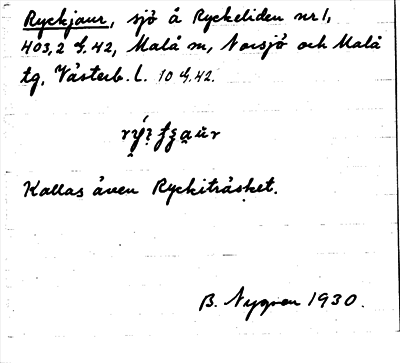 Ryckjaur, sjö å Ryckeliden nr 1,
403,2 4.42, Malå sn, Norsjö och Malå
tg, Västerb. l. 10 4.42.
Kallas även Ryckiträsket.
B. Nygren 1930.